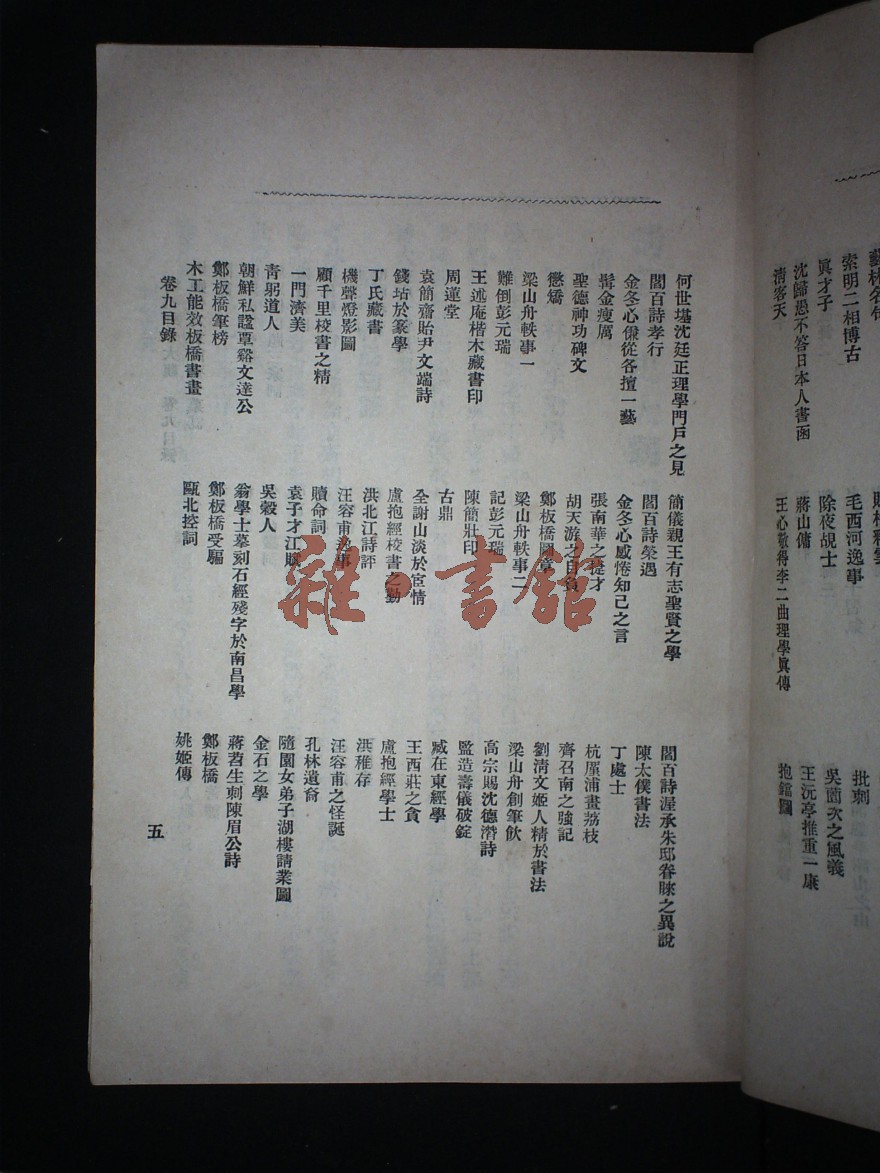 索明二相博古
毛西河逸事
批刺
眞才子
除夜覘士
吳薗次之風義
沈歸愚不答日本人書函
蔣山傭
王沅亭推重一康
清客天
王心敬得李二曲理學眞傳
何世璂沈廷正理學門戶之見
簡儀親王有志聖賢之學
閻百詩渥承朱邸眷睞之異說
閻百詩孝行
閻百詩榮遇
陳太僕書法
金冬心傔從各擅一藝
金冬心感惓知己之言
丁處士
髯金瘦厲
張南華之捷才
杭厪浦畫荔枝
聖德神功碑文
胡天游之自負
齊召南之強記
懲矯
鄭板橋圖章
劉清文姬人精於書法
梁山舟軼事一
梁山舟軼事二
梁山舟創筆飲
難倒彭元瑞
記彭元瑞
高宗賜沈德潛詩
王述庵楷木藏書印
陳簡壯印
監造壽儀破錠
周蓮堂
古鼎
臧在東經學
袁簡齋貽尹文端詩
全謝山淡於宦情
王西莊之貪
錢坫於篆學
盧抱經校書之勤
盧抱經學士
丁氏藏書
洪北江詩評
洪稚存
機聲燈影圖
汪容甫逸事
汪容甫之怪誕
顧千里校書之精
贖命詞
孔林遺裔
一門濟美
袁子才江賦
隨園女弟子湖樓請業圖
青躬道人
吳榖人
金石之學
朝鮮私諡覃谿文達公
翁學士摹刻石經殘字於南昌學
蔣苕生刺陳眉公詩
鄭板橋筆榜
鄭板橋受騙
鄭板橋
木工能效板橋書畫
甌北控詞
姚姬傳
卷九目錄
五
雜·書館